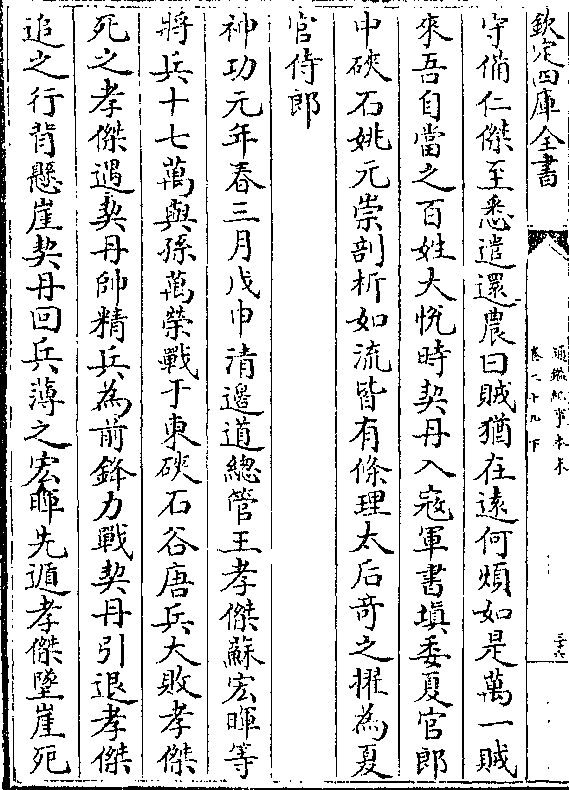 欽定四庫全書
通鑑紀事本末
卷二十九下
三六
守備仁傑至悉遣還農曰賊猶在遠何煩如是萬一賊
來吾自當之百姓大悅時契丹入寇軍書填委夏官郎
中硤石姚元崇剖析如流皆有條理太后奇之擢為夏
官侍郎
神功元年春三月戊申清邊道總管王孝傑蘇宏暉等
將兵十七萬與孫萬榮戰于東硤石谷唐兵大敗孝傑
死之孝傑遇契丹帥精兵為前鋒力戰契丹引退孝傑
追之行背懸崖契丹回兵薄之宏暉先遁孝傑墜崖死